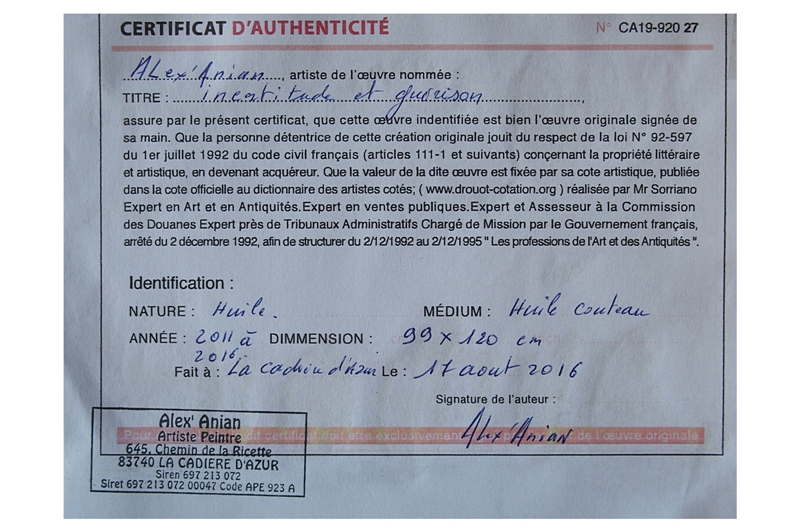 CERTIFICAT D'AUTHENTICITÉ N° CA19-920 27
Alex'Anian, artiste de l'œuvre nommée :
TITRE : incertitude et guérison,
assure par le présent certificat, que cette œuvre indentifiée est bien l'œuvre originale signée de
sa main. Que la personne détentrice de cette création originale jouit du respect de la loi N° 92-597
du 1er juillet 1992 du code civil français (articles 111-1 et suivants) conçernant la propriété littéraire
et artistique, en devenant acquéreur. Que la valeur de la dite œuvre est fixée par sa cote artistique, publiée
dans la cote officielle au dictionnaire des artistes cotés; ( www.drouot-cotation.org ) réalisée par Mr Sorriano
Expert en Art et en Antiquités.Expert en ventes publiques.Expert et Assesseur à la Commission
des Douanes Expert près de Tribunaux Administratifs Chargé de Mission par le Gouvernement français,
arrêté du 2 décembre 1992, afin de structurer du 2/12/1992 au 2/12/1995 " Les professions de l'Art et des Antiquités ".
Identification :
NATURE : Huile. MÉDIUM : Huile couteau
ANNÉE : 2011 à 2016. DIMMENSION : 99 x 120 cm
Fait à : La cadière d'azur Le : 17 aout 2016
Signature de l'auteur :
Alex'Anian
Pour du certificat doit etre exclusivement de l'œuvre originale
Alex' Anian
Artiste Peintre
645, Chemin de la Ricette
83740 LA CADIERE D'AZUR
Siren 697 213 072
Siret 697 213 072 00047 Code APE 923 A